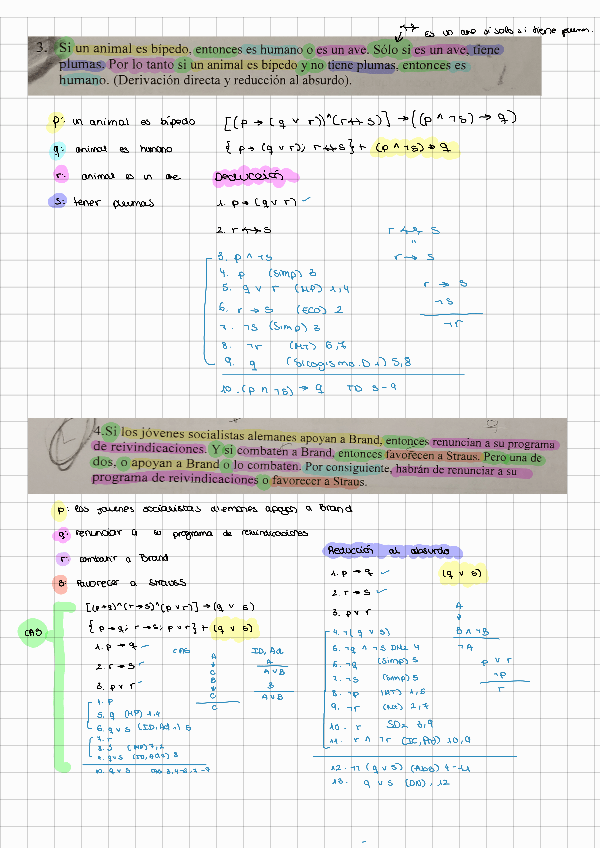 Es un ave si solo si tiene plumas.
3. Si un animal es bípedo, entonces es humano o es un ave. Sólo si es un ave, tiene
plumas. Por lo tanto si un animal es bípedo y no tiene plumas, entonces es
humano. (Derivación directa y reducción al absurdo).
p: un animal es bípedo
[(p → (q ∨ r))^(r↔s)] → ((p ∧ ¬s) → q)
q: animal es humano
{p → (q ∨ r); r↔s} ⊢ (p ∧ ¬s) → q
r: animal es un ave
Deducción
s: tener plumas
1. p → (q ∨ r) ✓
2. r ↔ s
r ↔ s
"
3. p ∧ ¬s
r → s
4. p (Simp) 3
5. q ∨ r (MP) 1,4
r → s
6. r → s (ECO) 2
¬s
7. ¬s (Simp) 3
¬r
8. ¬r (MT) 6,7
9. q (Silogismo. D.1) 5,8
10. (p ∧ ¬s) → q TD 3-9
4. Si los jóvenes socialistas alemanes apoyan a Brand, entonces renuncian a su programa
de reivindicaciones. Y si combaten a Brand, entonces favorecen a Straus. Pero una de
dos, o apoyan a Brand o lo combaten. Por consiguiente, habrán de renunciar a su
programa de reivindicaciones o favorecer a Straus.
p: los jóvenes socialistas alemanes apoyan a Brand
q: renunciar a su programa de reivindicaciones
r: combatir a Brand
s: favorecer a Strauss
[(p→q)^(r→s)^(p∨r)] → (q ∨ s)
{p→q; r→s; p∨r} ⊢ (q ∨ s)
CAS
1. p → q ✓
2. r → s ✓
3. p ∨ r ✓
4. p
5. q (MP) 1,4
6. q ∨ s (ID, Ad.1) 5
7. r
8. s (MP) 7,2
9. q ∨ s (ID, Ad2) 8
10. q ∨ s CAS 3,4-6,7-9
CAS
A
↓
C
B
↓
C
C
ID, Ad
A
A ∨ B
B
A ∨ B
Reducción al absurdo
1. p → q ✓
(q ∨ s)
2. r → s ✓
3. p ∨ r
4. ¬(q ∨ s)
5. ¬q ∧ ¬s DML 4
6. ¬q (Simp) 5
7. ¬s (Simp) 5
8. ¬p (MT) 1,6
9. ¬r (MT) 2,7
10. r SD2 3,8
11. r ∧ ¬r (IC, Pd) 10,9
12. ¬¬(q ∨ s) (Abs) 4-11
13. q ∨ s (DN), 12
A
↓
B ∧ ¬B
¬A
p ∨ r
¬p
r